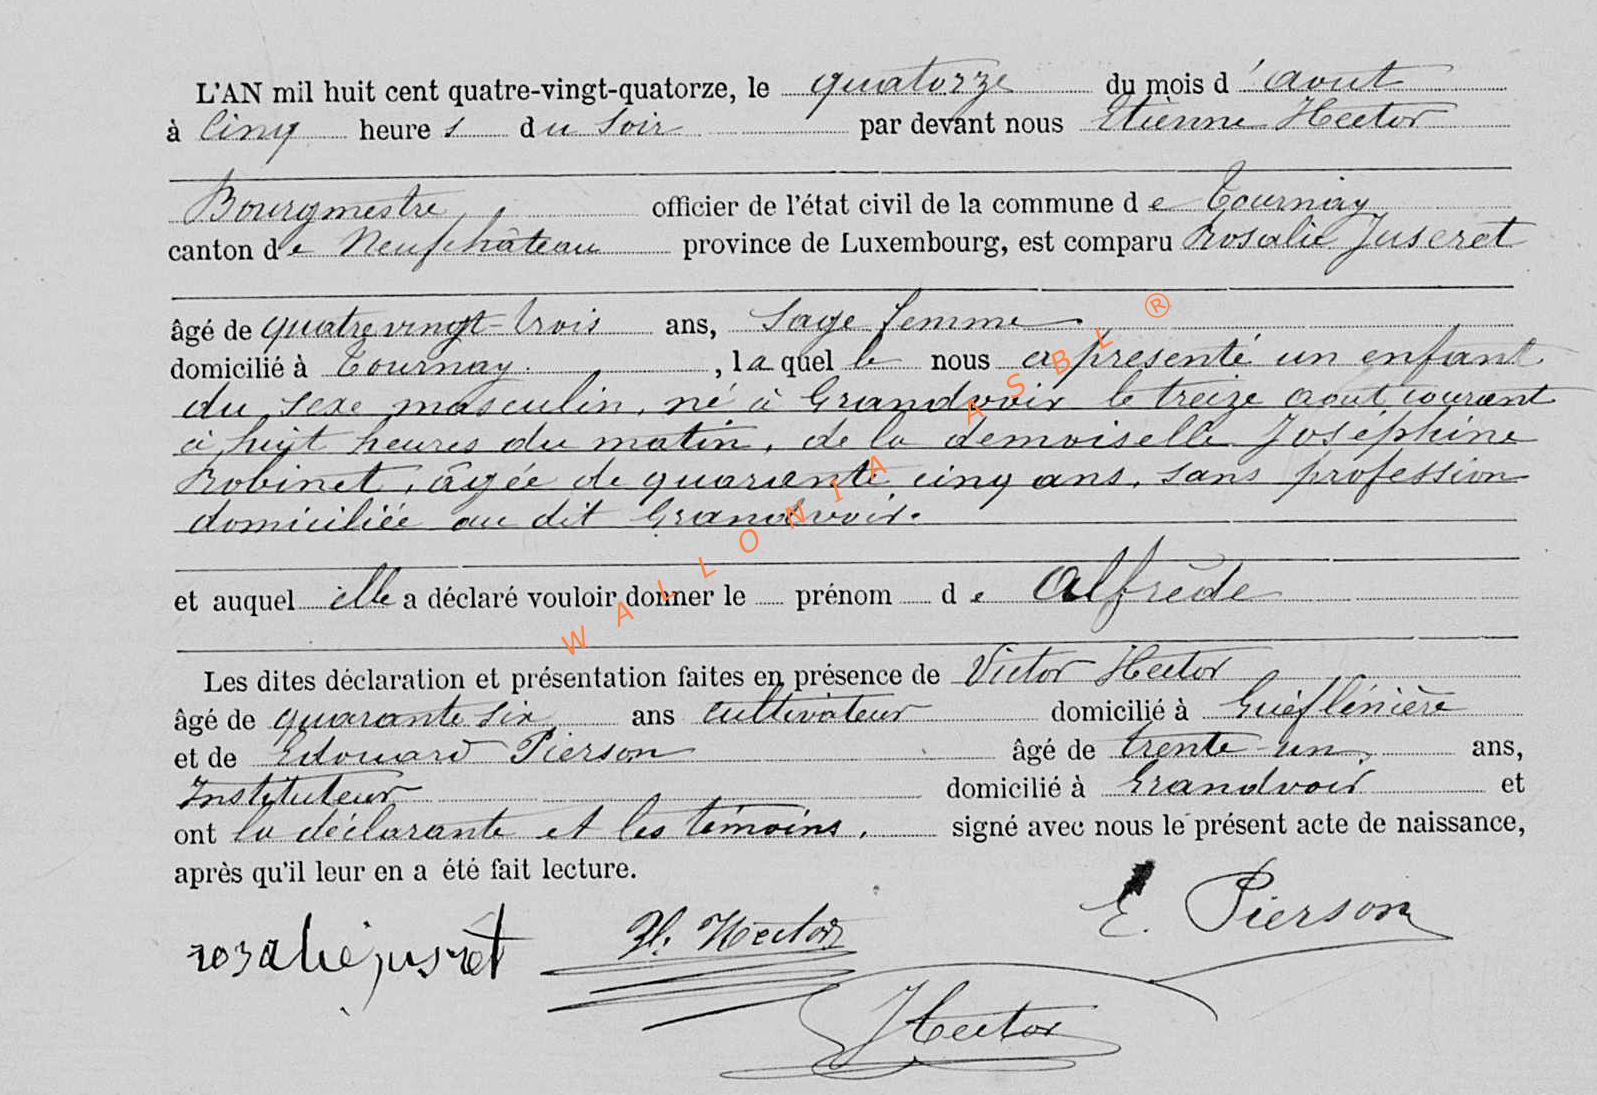 L'AN mil huit cent quatre-vingt-quatorze, le quatorze du mois d'aout
à Cinq heures du soir par devant nous Etienne Hector
Bourgmestre officier de l'état civil de la commune de Tournay
canton de Neufchâteau province de Luxembourg, est comparu Rosalie Juseret
âgé de quatre vingt-trois ans, Sage femme
domicilié à Tournay. , laquelle nous a présenté un enfant
du sexe masculin, né à Grandvoir le treize aout courant
à huit heures du matin, de la demoiselle Joséphine
Robinet, âgée de quarante cinq ans, sans profession
domiciliée au dit Grandvoir.
et auquel elle a déclaré vouloir donner le prénom de Alfrède
Les dites déclaration et présentation faites en présence de Victor Hector
âgé de quarante six ans cultivateur domicilié à
et de Edouard Pierson âgé de trente-un, ans,
Instituteur domicilié à Grandvoir et
ont la déclarante et les témoins, signé avec nous le présent acte de naissance,
après qu'il leur en a été fait lecture.
rozalie jusrèt Hector E. Pierson
Hector
WALLONIA ASBL ®